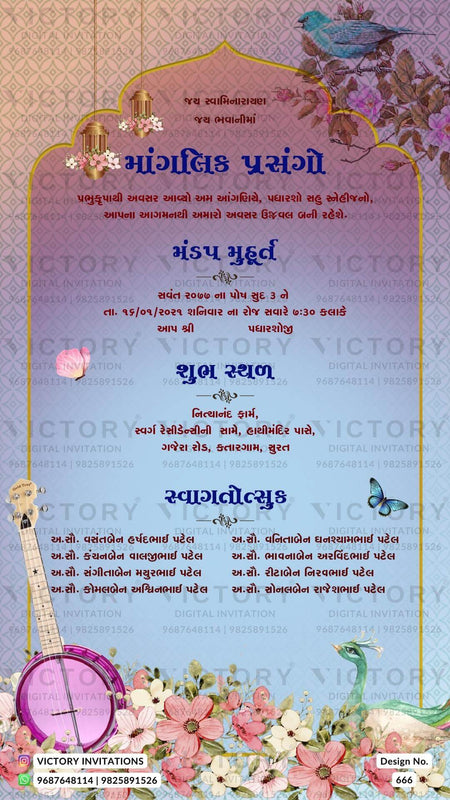 જય સ્વામિનારાયણ
જય ભવાનીમાં
માંગલિક પ્રસંગો
પ્રભુકૃપાથી અવસર આવ્યો અમ આંગણિયે, પધારશો સહુ સ્નેહીજનો,
આપના આગમનથી અમારો અવસર ઉજ્વલ બની રહેશે.
મંડપ મુહૂર્ત
સવંત ૨૦૭૭ ના પોષ સુદ ૩ ને
તા. ૧૬/૦૧/૨૦૨૧ શનિવાર ના રોજ સવારે ૭:૩૦ કલાકે
આપ શ્રી પધારશોજી
શુભ સ્થળ
નિત્યાનંદ ફાર્મ,
સ્વર્ગ રેસીડેન્સીની સામે, હાથીમંદિર પાસે,
ગજેરા રોડ, કતારગામ, સુરત
સ્વાગતોત્સુક
અ.સૌ. વસંતબેન હર્ષદભાઈ પટેલ
અ.સૌ. કંચનબેન વાલજીભાઈ પટેલ
અ.સૌ. સંગીતાબેન મયુરભાઈ પટેલ
અ.સૌ. કોમલબેન અશ્વિનભાઈ પટેલ
અ.સૌ. વનિતાબેન ઘનશ્યામભાઈ પટેલ
અ.સૌ. ભાવનાબેન અરવિંદભાઈ પટેલ
અ.સૌ. રીટાબેન નિરવભાઈ પટેલ
અ.સૌ. સોનલબેન રાજેશભાઈ પટેલ
VICTORY INVITATIONS
9687648114 | 9825891526
Design No.
666
VICTORY
DIGITAL INVITATION
9687648114 | 9825891526